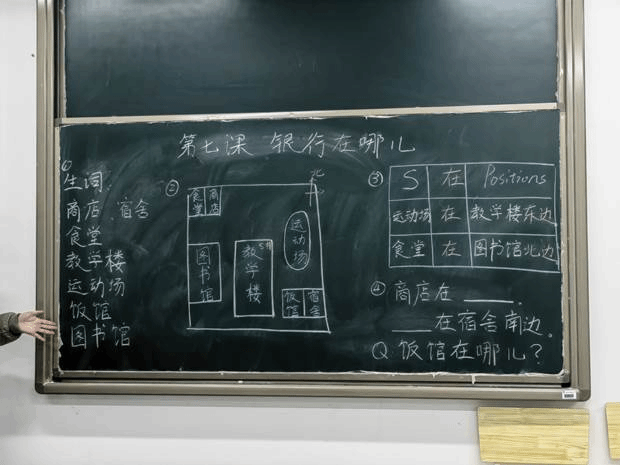 第七课 银行在哪儿
①
生词:
商店 宿舍
食堂
教学楼
运动场
饭馆
图书馆
②
北
食堂 商店
运动场
图书馆
教学楼
饭馆 宿舍
③
S 在 Positions
运动场 在 教学楼东边
食堂 在 图书馆北边
④ 商店在____.
____在宿舍南边。
Q: 饭馆在哪儿?